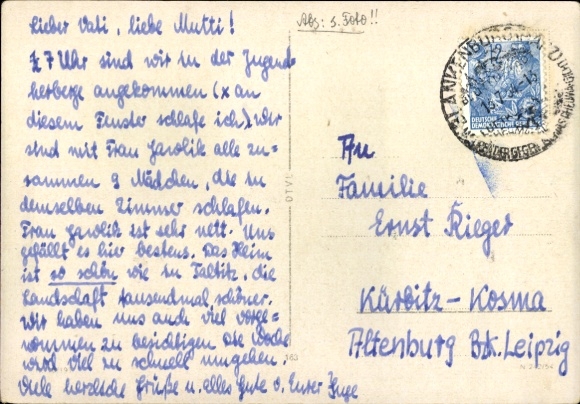 Lieber Vati, liebe Mutti!
½ 7 Uhr sind wir in der Jugend
herberge angekommen (x an
diesem Fenster schlafe ich), wir
sind mit Frau Jarolik alle zu=
sammen 9 Mädchen, die in
demselben Zimmer schlafen.
Frau Jarolik ist sehr nett. Uns
gefällt es hier bestens. Das Heim
ist so schön wie in Taltitz, die
Landschaft tausendmal schöner.
Wir haben uns auch viel vorge=
nommen zu besichtigen die Woche
wird viel zu schnell umgehen.
Viele herzliche Grüße u. alles Gute v. Eurer Inge
Abs: s. Foto!!
BLANKENBURG
DEUTSCHE
DEMOKRATISCHE
An
Familie
Ernst Rieger
Kürbitz-Kosma
Altenburg Bzk. Leipzig
DTVL
163